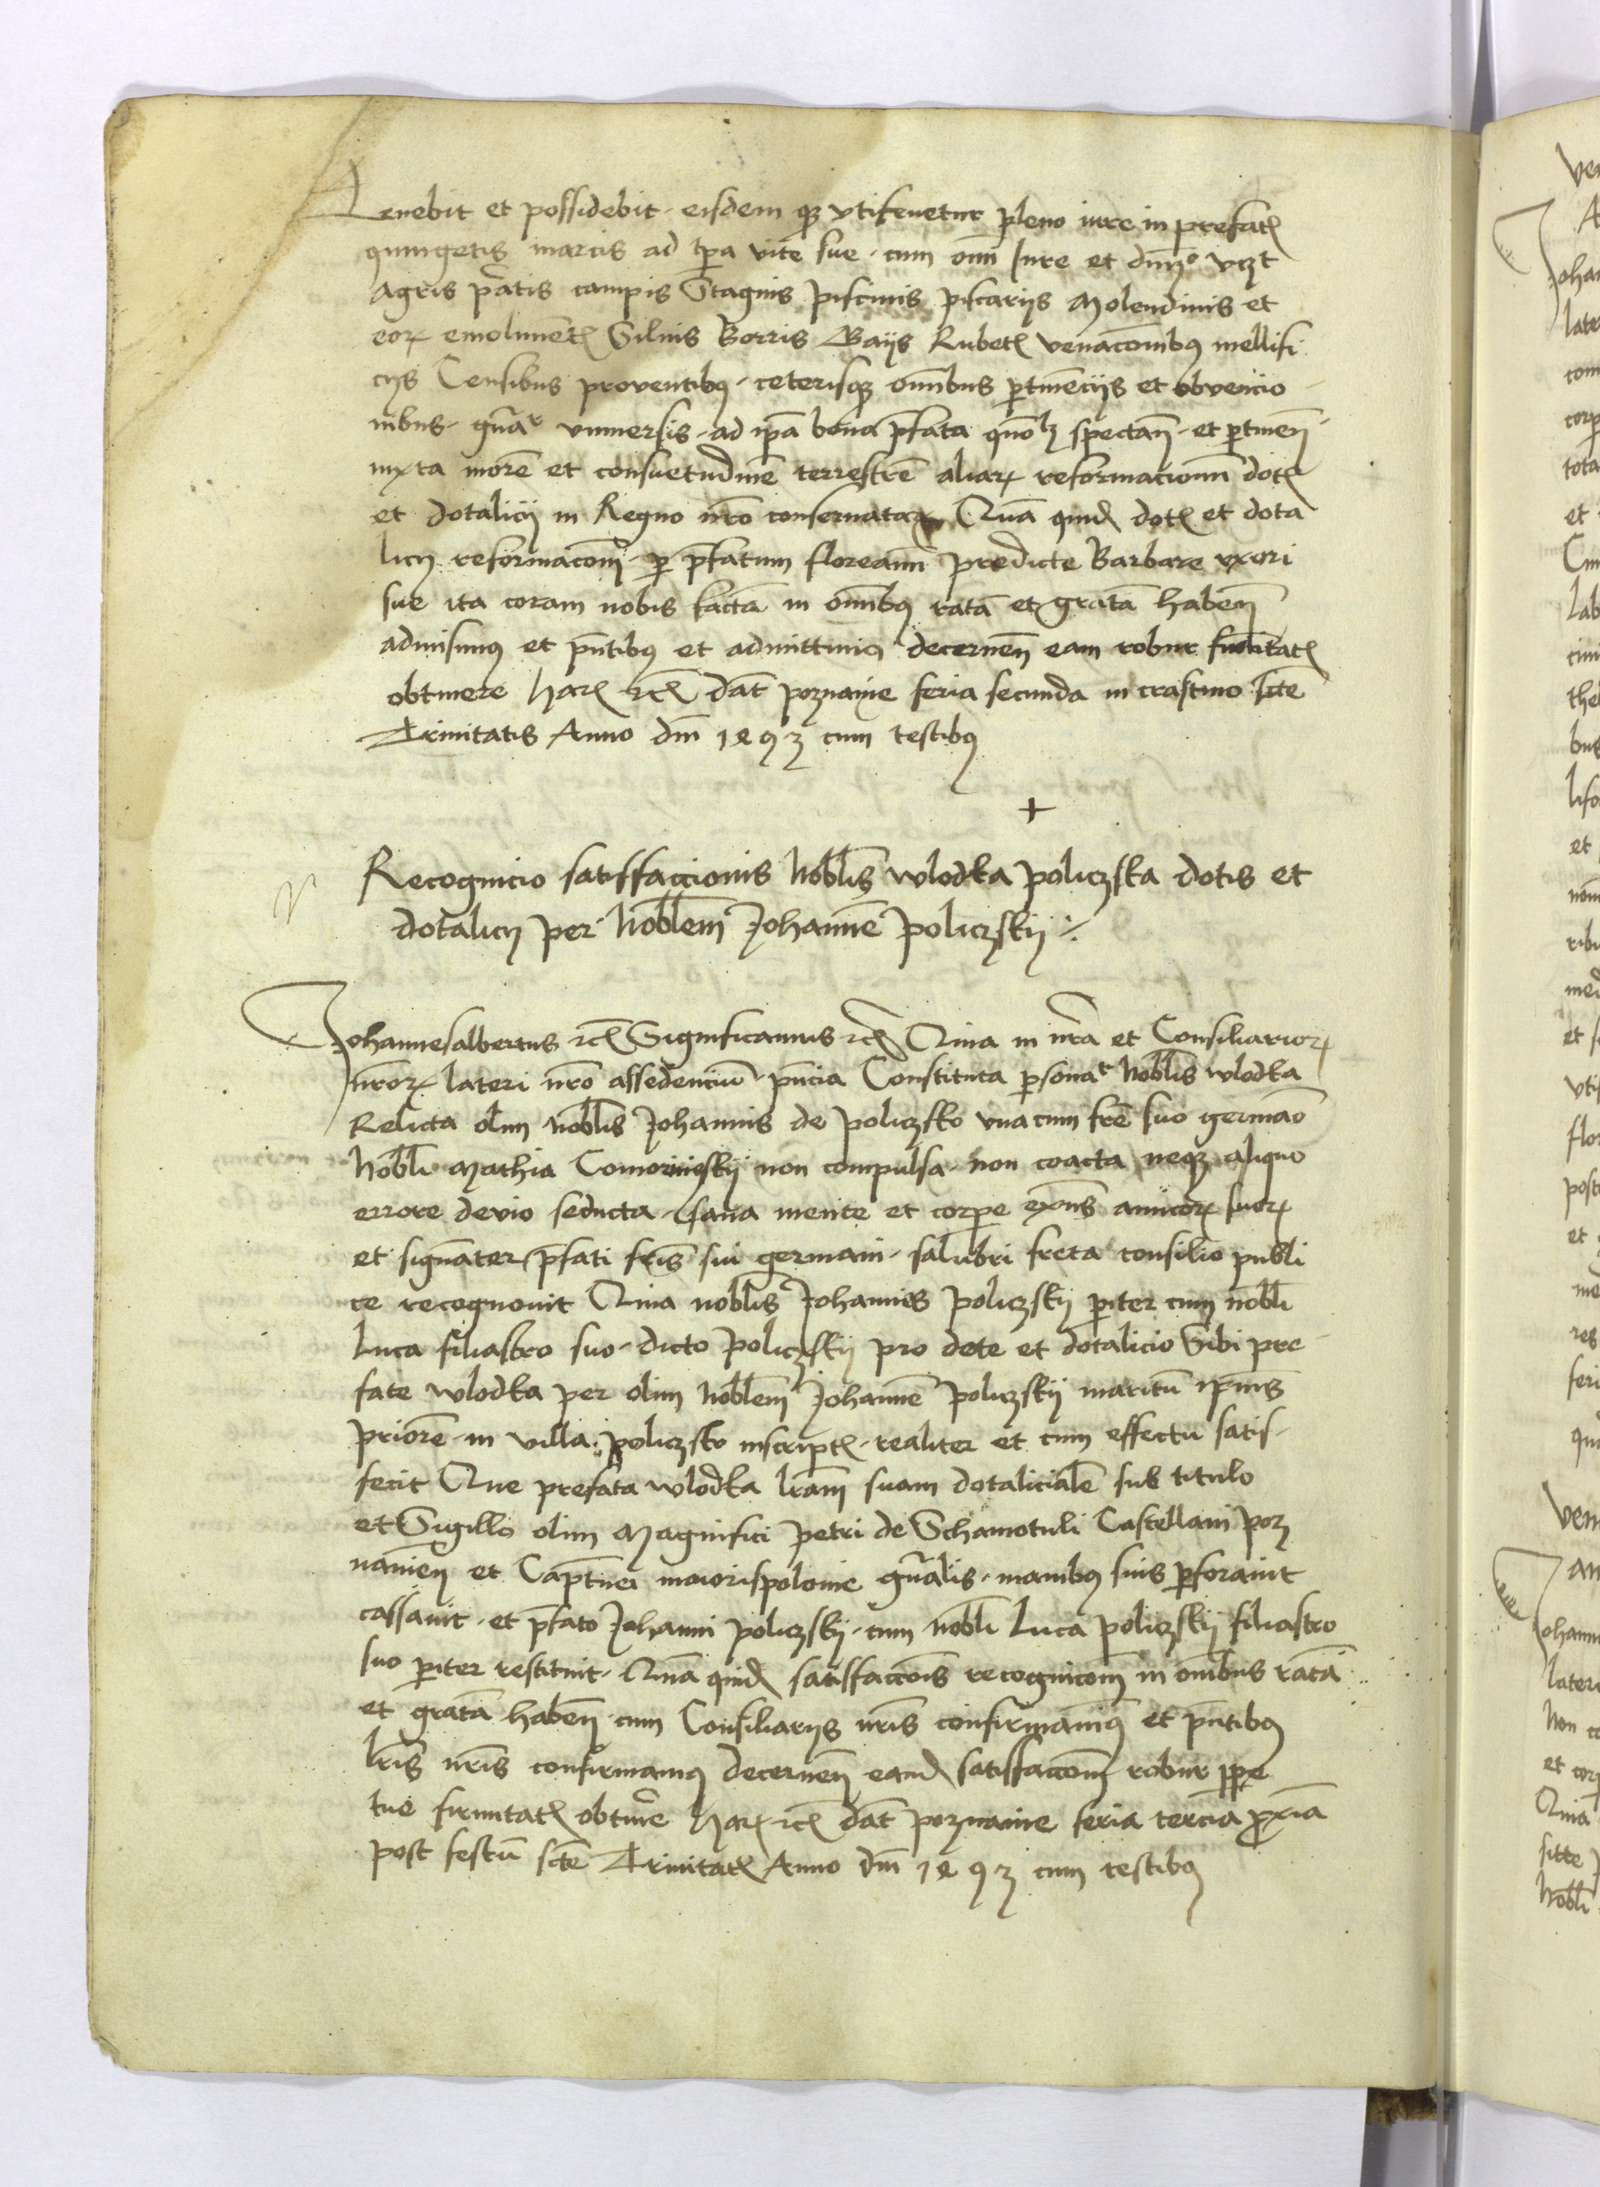 Tenebit et possidebit eisdem qz vtifruetur pleno iure in prefatz
quingetis marcis ad tpa vite sue cum omi Jure et dmio vczt
Agris pratis campis Stagnis piscinis piscarijs Molendinis et
eorz emolimentz Siluis Borris Gaijs Rubetz venacombus mellifi
cijs Censibus proventibus ceterisqz omnibus ptinencijs et obvencio
nibus gnar vniuersis ad ipa bona pfata quolz spectan et ptinen
iuxta more et consuetudine terrestre aliarz reformacionum dotz
et dotalicij in Regno nro conseruata Qua quid dotz et dota
licij reformacom p pfatum floreanu predicte Barbare vxori
sue ita coram nobis facta in omibus rata et grata haben
admisimus et pntibus et admittimus decernen eam robur firmitatz
obtinere Harz etc Dat poznanie feria secunda in crastino scte
Trinitatis Anno dni 1493 cum testibus
Recognicio satisfaccionis Nobilis wlodka policzska dotis et
dotalicij per Nobilem Johanne policzskij
Johannesalbertus etc Significamus etc Quia in nra et Consiliariorz
nrorz lateri nro assedenciu pncia Constituta psonar Nobilis wlodka
Relicta olim Nobilis Johannis de policzsko vnacum fre suo germano
Nobili Mathia Comorniskij non compulsa non coacta neqz aliquo
errore devio seducta sana mente et corpe exns amicorz suorz
et signater pfati fris sui germani salubri freta consilio publi
ce recognouit Quia nobilis Johannes policzskij piter cum nobili
Luca filiastro suo dicto policzskij pro dote et dotalicio Sibi pre
fate wlodka per olim Nobilem Johanne policzskij maritu ipius
priore in villa policzsko inscriptz realiter et cum effectu satis
fecit Que prefata wlodka lram suam dotaliciale sub titulo
et Sigillo olim Magnifici petri de Schamotuli Castellani poz
nanien et Captnei maiorispolonie gnalis manibus suis pforauit
cassauit et pfato Johanni policzskij cum nobili Luca policzskij filiastro
suo piter restituit Qua quid satisfaccois recognicom in omibus rata
et grata haben cum Consiliarijs nris confirmauimus et pntibus
lris nris confirmamus decernen eand satisfaccom robur ppe
tue firmitatz obtinere Harz etc Dat poznanie feria tercia pxia
post festu scte Trinitatz Anno dni 1493 cum testibus